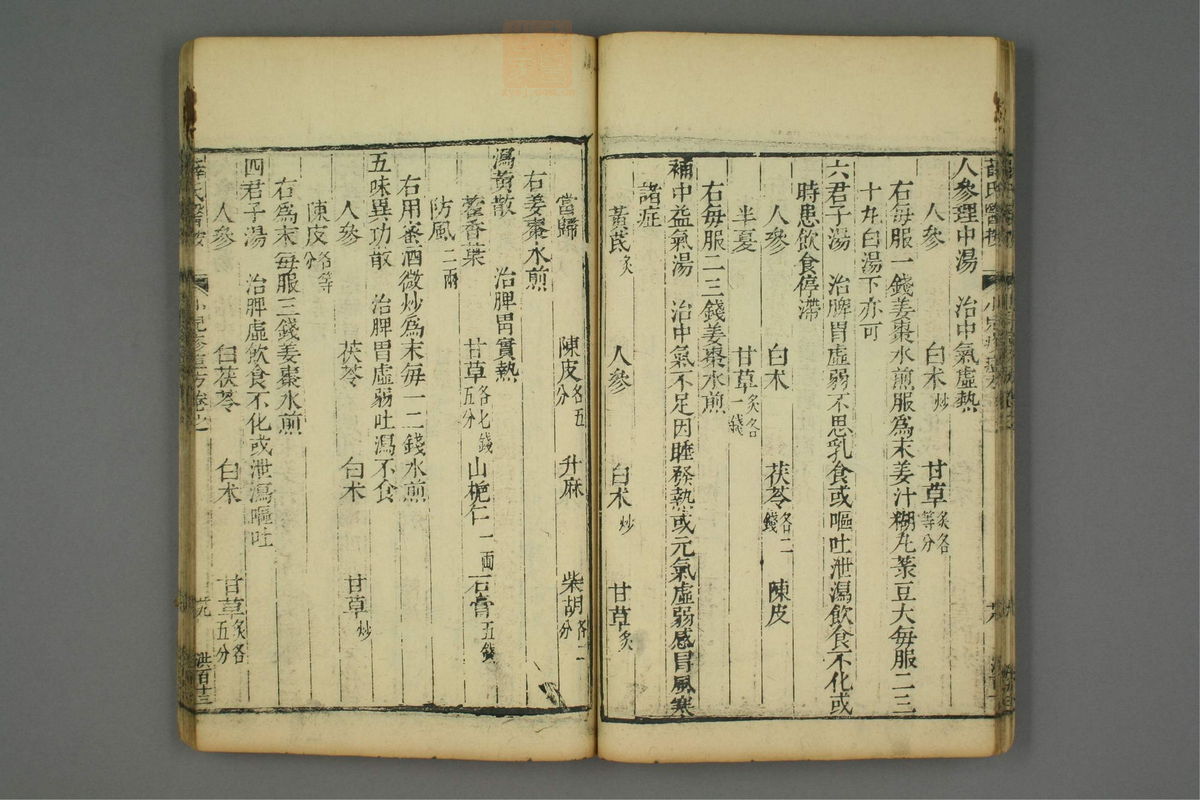 薛氏醫按
人參理中湯 治中氣虛熱
人參 白朮炒 甘草炙各等分
右每服一錢姜棗水煎服爲末姜汁糊丸菉豆大每服二三
十丸白湯下亦可
六君子湯 治脾胃虛弱不思乳食或嘔吐泄瀉飲食不化或
時患飲食停滯
人參 白朮 茯苓各二錢 陳皮
半夏 甘草炙各一錢
右每服二三錢姜棗水煎
補中益氣湯 治中氣不足因睡發熱或元氣虛弱感冒風寒
諸症
黃芪炙 人參 白朮炒 甘草炙
當歸 陳皮各五分 升麻 柴胡各二分
右姜棗水煎
瀉黃散 治脾胃實熱
藿香葉 甘草各七錢五分 山梔仁一兩 石膏五錢
防風二兩
右用蜜酒微炒爲末每一二錢水煎
五味異功散 治脾胃虛弱吐瀉不食
人參 茯苓 白朮 甘草炒
陳皮各等分
右爲末每服三錢姜棗水煎
四君子湯 治脾虛飲食不化或泄瀉嘔吐
人參 白茯苓 白朮 甘草炙各五分
薛氏醫按 洪百十三